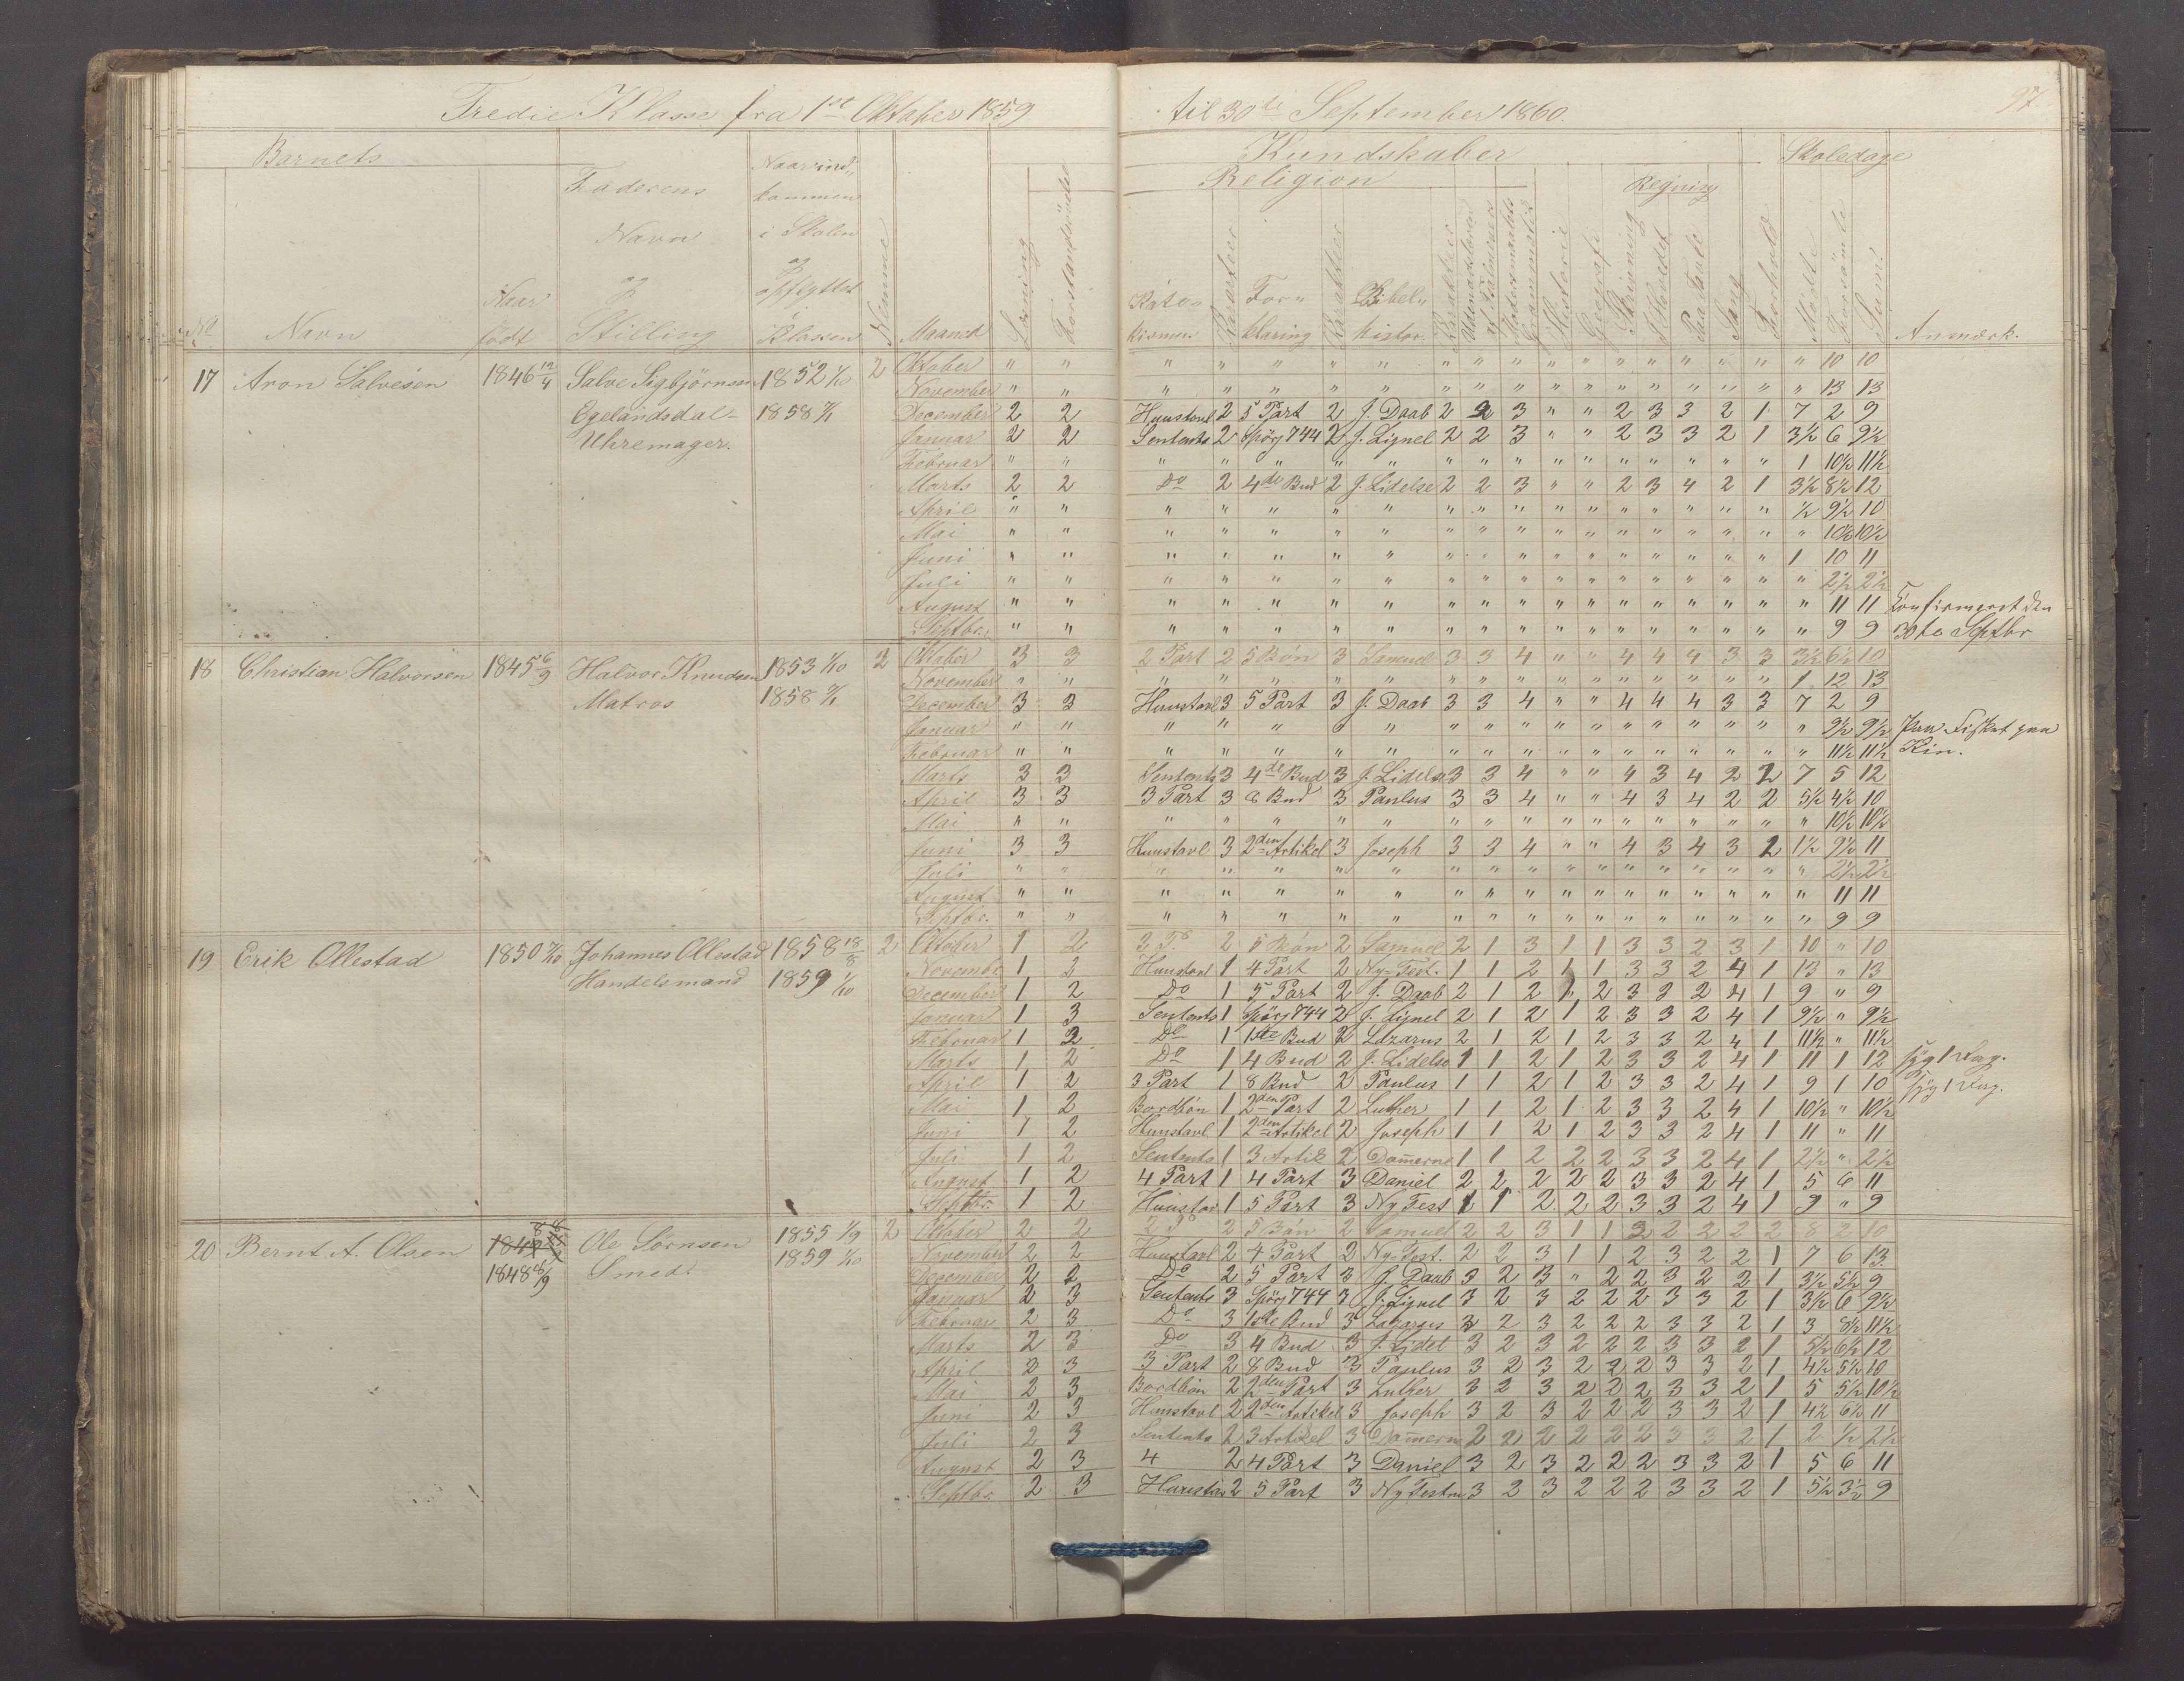 Tredie Klasse fra 1ste Oktober 1859 til 30te September 1860.
97.
Barnets
Kundskaber
Skoledage
No
Navn
Naar født
Faderens Navn og Stilling
Naar ind- kommen i Skolen og opflyttet i Klassen
Nemme
Maaned
Læsning
Religion
Kate- kismus
Karakter
For- klaring
Karakter
Bibel- histor.
Karakter
Historie
Geografi
Skrivning
Regning
I Hovedet
Paa Tavle
Sang
Forhold
Mødte
Forsømte
Sum
Anmærk.
17 Aron Salvesen 1846 12/4 Salve Sigbjörnsen 1852 1/10 2 Oktober " " " " " " " " " " " " " " " " " " " 10 10
November " " " " " " " " " " " " " " " " " " " 13 13
Egelandsdal- 1858 7/1 December 2 2 Huustavl 2 5 Part 2 J. Daab 2 2 3 " " 2 3 3 2 1 7 2 9
Uhremager. Januar 2 2 Sentents 2 Spörj 744 2 J. Lignel 2 2 3 " " 2 3 3 2 1 3½ 6 9½
Februar " " " " " " " " " " " " " " " " " " 1 10½ 11½
Marts 2 2 Do 2 4de Bud 2 J. Lidelse 2 2 3 " " 2 3 4 2 1 3½ 8½ 12
April " " " " " " " " " " " " " " " " " " ½ 9½ 10
Mai " " " " " " " " " " " " " " " " " " " 10½ 10½
Juni " " " " " " " " " " " " " " " " " " 1 10 11
Juli " " " " " " " " " " " " " " " " " " " 2½ 2½
August " " " " " " " " " " " " " " " " " " " 11 11 Confirmeret den
Septbr. " " " " " " " " " " " " " " " " " " " 9 9 30te Septbr
18 Christian Halvorsen 1845 6/9 Halvor Knudsen 1853 1/10 2 Oktober 3 3 2 Part 2 5 Bøn 3 Samuel 3 3 4 " " 4 4 4 3 3 3½ 6½ 10
1858 7/1 November " " " " " " " " " " " " " " " " " " 1 12 13
Matros December 3 3 Huustavl 3 5 Part 3 J. Daab 3 3 4 " " 4 4 4 3 3 7 2 9
Januar " " " " " " " " " " " " " " " " " " " 9½ 9½ Paa Fisket paa
Februar " " " " " " " " " " " " " " " " " " " 11½ 11½ Kin.
Marts 3 3 Sentents 3 4de Bud 3 J. Lidelse 3 3 4 " " 4 3 4 2 2 7 5 12
April 3 3 3 Part 3 8 Bud 3 Paulus 3 3 4 " " 4 3 4 2 2 5½ 4½ 10
Mai " " " " " " " " " " " " " " " " " " " 10½ 10½
Juni 3 3 Huustavl 3 2den Artikel 3 Joseph 3 3 4 " " 4 3 4 3 2 1½ 9½ 11
Juli " " " " " " " " " " " " " " " " " " " 2½ 2½
August " " " " " " " " " " " " " " " " " " " 11 11
Septbr. " " " " " " " " " " " " " " " " " " " 9 9
19 Erik Ollestad 1850 Johannes Ollestad 1858 18/8 2 Oktober 1 2 3 P. 2 5 Bøn 2 Samuel 2 1 3 1 1 3 3 2 3 1 10 " 10
Handelsmand 1859 1/10 Novembr 1 2 Huustavl 1 4 Part 2 Ny-Test. 1 1 2 1 1 3 3 2 4 1 13 " 13
December 1 2 Do 1 5 Part 2 J. Daab 2 1 2 1 2 3 3 2 4 1 9 " 9
Januar 1 3 Sentents 1 Spörj 744 2 J. Lignel 2 1 2 1 2 3 3 2 4 1 9½ " 9½
Februar 1 2 Do 1 1ste Bud 2 Lazarus 2 1 2 1 2 3 3 2 4 1 11½ " 11½
Marts 1 2 Do 1 4 Bud 2 J. Lidelse 1 1 2 1 2 3 3 2 4 1 11 1 12 syg 1 Dag.
April 1 2 3 Part 1 8 Bud 2 Paulus 1 1 2 1 2 3 3 2 4 1 9 1 10 syg 1 Dag.
Mai 1 2 Bordbön 1 2den Part 2 Luther 1 1 2 1 2 3 3 2 4 1 10½ " 10½
Juni 1 2 Huustavl 1 2den Artikel 2 Joseph 1 1 2 1 2 3 3 2 4 1 11 " 11
Juli 1 2 Sentents 1 3 Artik 2 Domerne 1 1 2 2 2 3 3 2 4 1 2½ " 2½
August 1 2 4 Part 1 4 Part 3 Daniel 2 2 2 2 2 3 3 2 4 1 5 6 11
Septbr. 1 2 Huustav 1 5 Part 3 Ny Test 1 1 2 2 2 3 3 2 4 1 9 " 9
20 Bernt A. Olsen Ole Sörnsen 1855 1/9 2 Oktober 2 2 2 P. 2 5 Bøn 2 Samuel 2 2 3 1 1 2 2 2 2 2 8 2 10
1848 Smed. 1859 1/10 November 2 2 Huustavl 2 4 Part 2 Ny-Test. 2 2 3 1 1 2 3 2 2 1 7 6 13
December 2 2 Do 2 5 Part 3 J. Daab 3 2 3 " 2 2 3 2 2 1 3½ 5½ 9
Januar 2 3 Sentents 3 Spörj 744 3 J. Lignel 3 2 3 2 2 2 3 3 2 1 3½ 6 9½
Februar 2 3 Do 3 1ste Bud 3 Lazarus 3 2 3 2 2 2 3 3 2 1 3 8½ 11½
Marts 2 3 Do 3 4 Bud 3 J. Lidel 3 2 3 2 2 2 3 3 2 1 5½ 6½ 12
April 2 3 3 Part 2 8 Bud 3 Paulus 3 2 3 2 2 2 3 3 2 1 4½ 5½ 10
Mai 2 3 Bordbön 2 2den Part 3 Luther 3 2 3 2 2 2 3 3 2 1 5 5½ 10½
Juni 2 3 Huustavl 2 2den Artikel 3 Joseph 3 2 3 2 2 2 3 3 2 1 4½ 6½ 11
Juli 2 3 Sentents 2 3 Artikel 3 Domerne 2 2 2 2 2 2 3 3 2 1 2 ½ 2½
August 2 3 4 2 4 Part 3 Daniel 3 2 3 2 2 2 3 3 2 1 5 6 11
Septbr. 2 3 Huustav 2 5 Part 3 Ny Testm 3 2 3 2 2 2 3 3 2 1 5½ 3½ 9